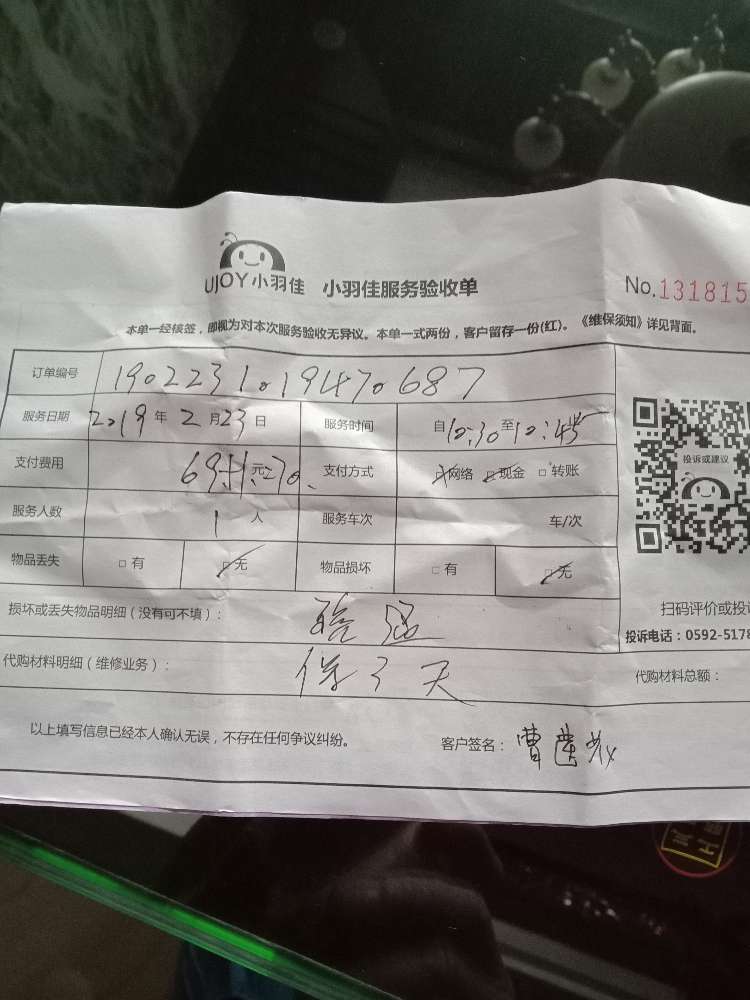 UJOY小羽佳 小羽佳服务验收单 No.131815
本单一经核签，即视为对本次服务验收无异议。本单一式两份，客户留存一份(红)。《维保须知》详见背面。
订单编号 1902231019470687
服务日期 2019年2月23日 服务时间 自10:30至10:45
支付费用 元 支付方式 网络 □现金 □转账
投诉或建议
服务人数 1人 服务车次 车/次
物品丢失 □有 □无 物品损坏 □有 □无
扫码评价或投
损坏或丢失物品明细（没有可不填）：
投诉电话：0592-5178
代购材料明细（维修业务）： 保3天 代购材料总额：
以上填写信息已经本人确认无误，不存在任何争议纠纷。 客户签名：曹